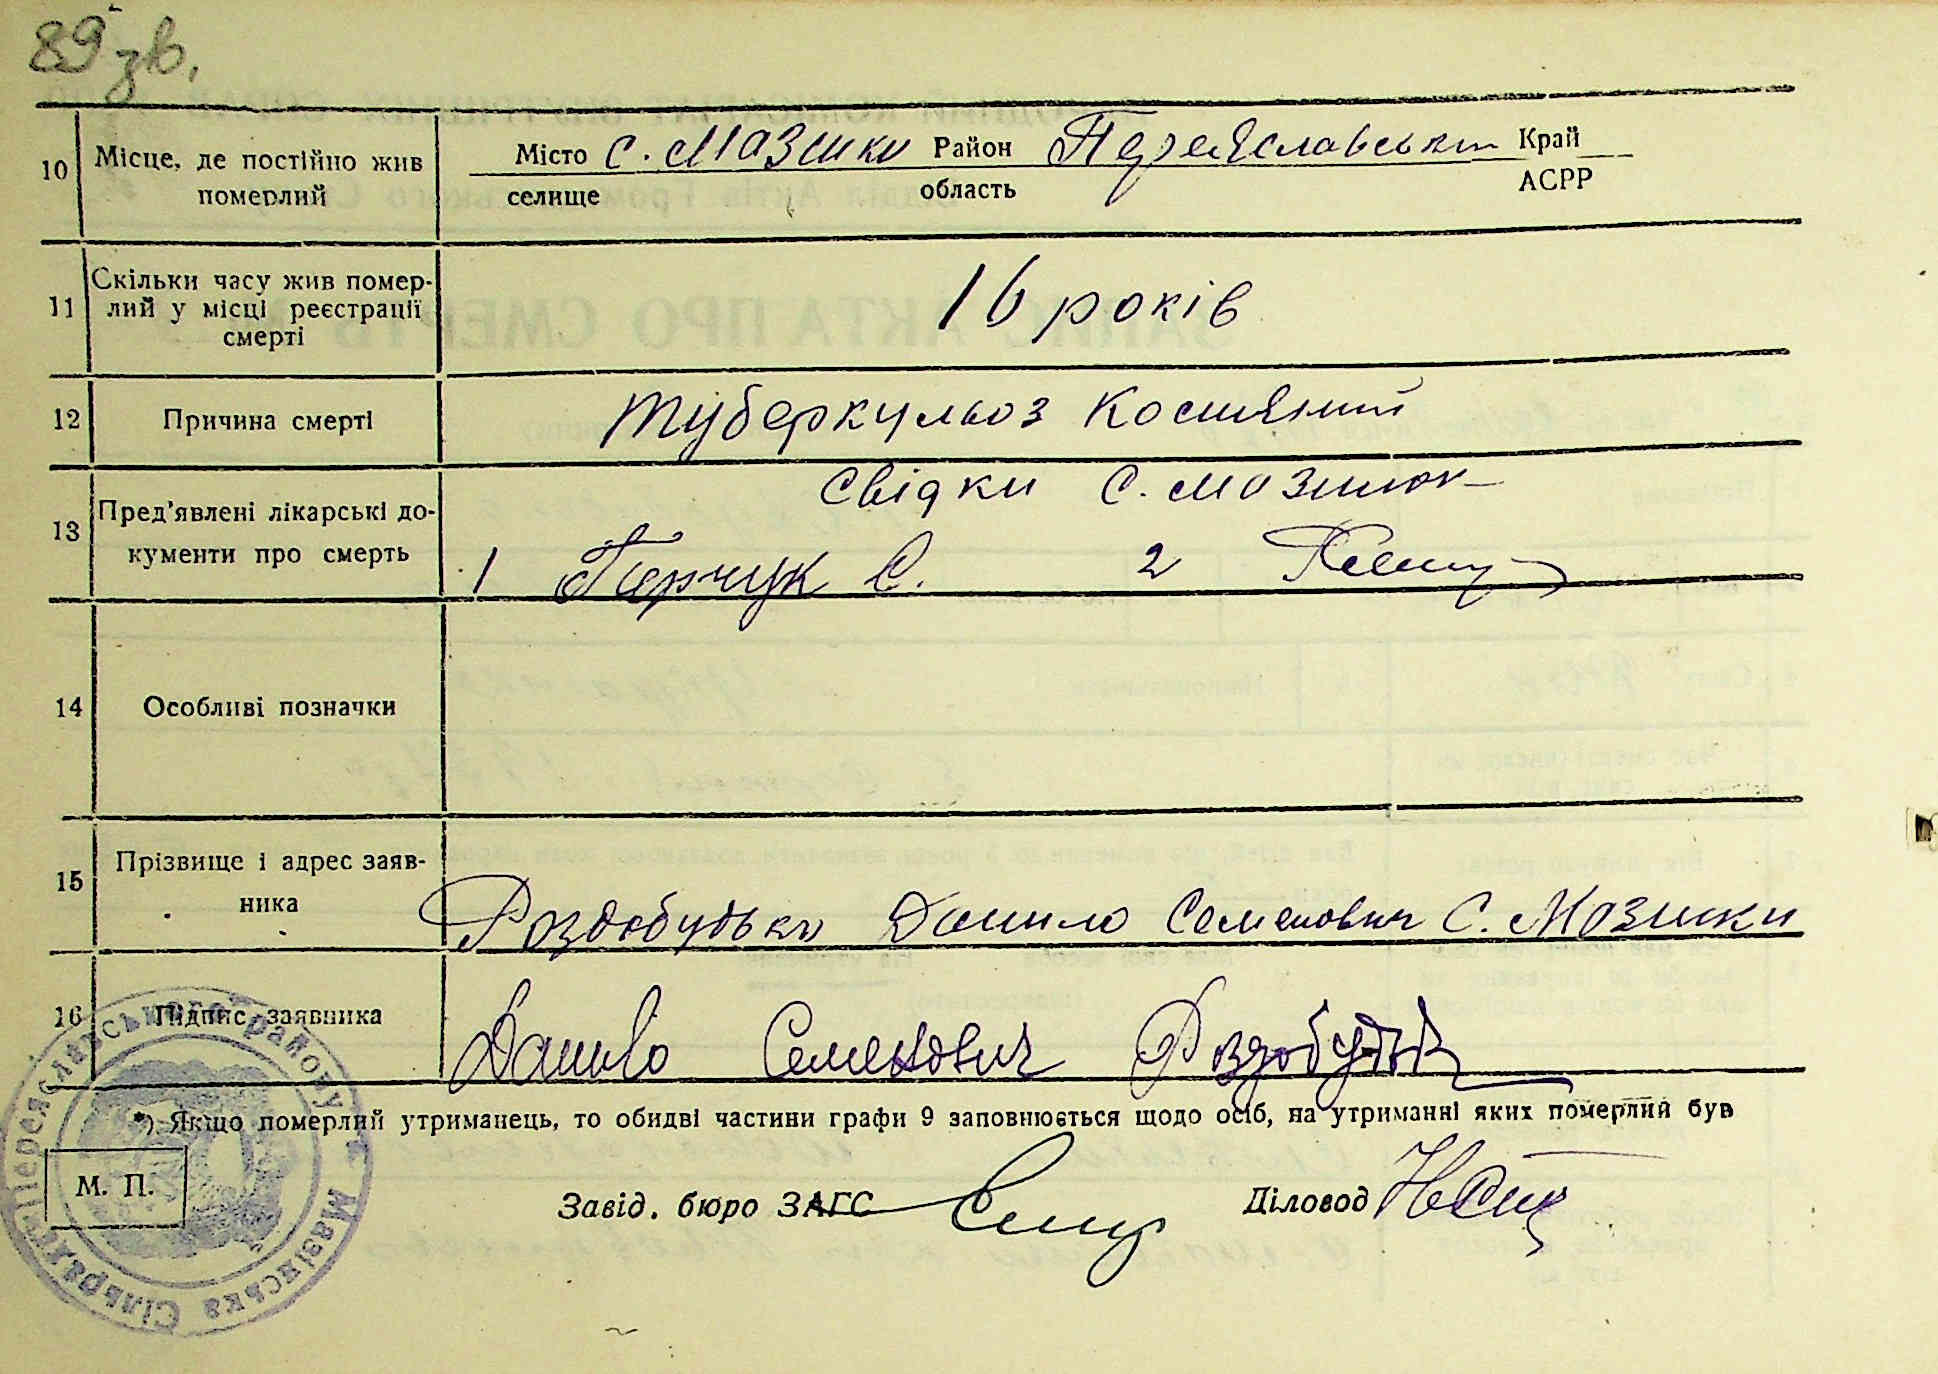 89 зв.
10 Місце, де постійно жив померлий
Місто с. Мазінки Район Переяславський Край
селище область АСРР
11 Скільки часу жив помер-
лий у місці реєстрації
смерті
16 років
12 Причина смерті
Туберкульоз костяний
13 Пред'явлені лікарські до-
кументи про смерть
Свідки с. Мазінок
1 Перчук С. 2
14 Особливі позначки
15 Прізвище і адрес заяв-
ника
Роздобудько Данило Семенович с. Мазінки
16 Підпис заявника
Данило Семенович Роздобудько
*) Якщо померлий утриманець, то обидві частини графи 9 заповнюється щодо осіб, на утриманні яких померлий був
М. П.
Завід. бюро ЗАГС
Діловод
Мазінська Сільрада Переяславського району